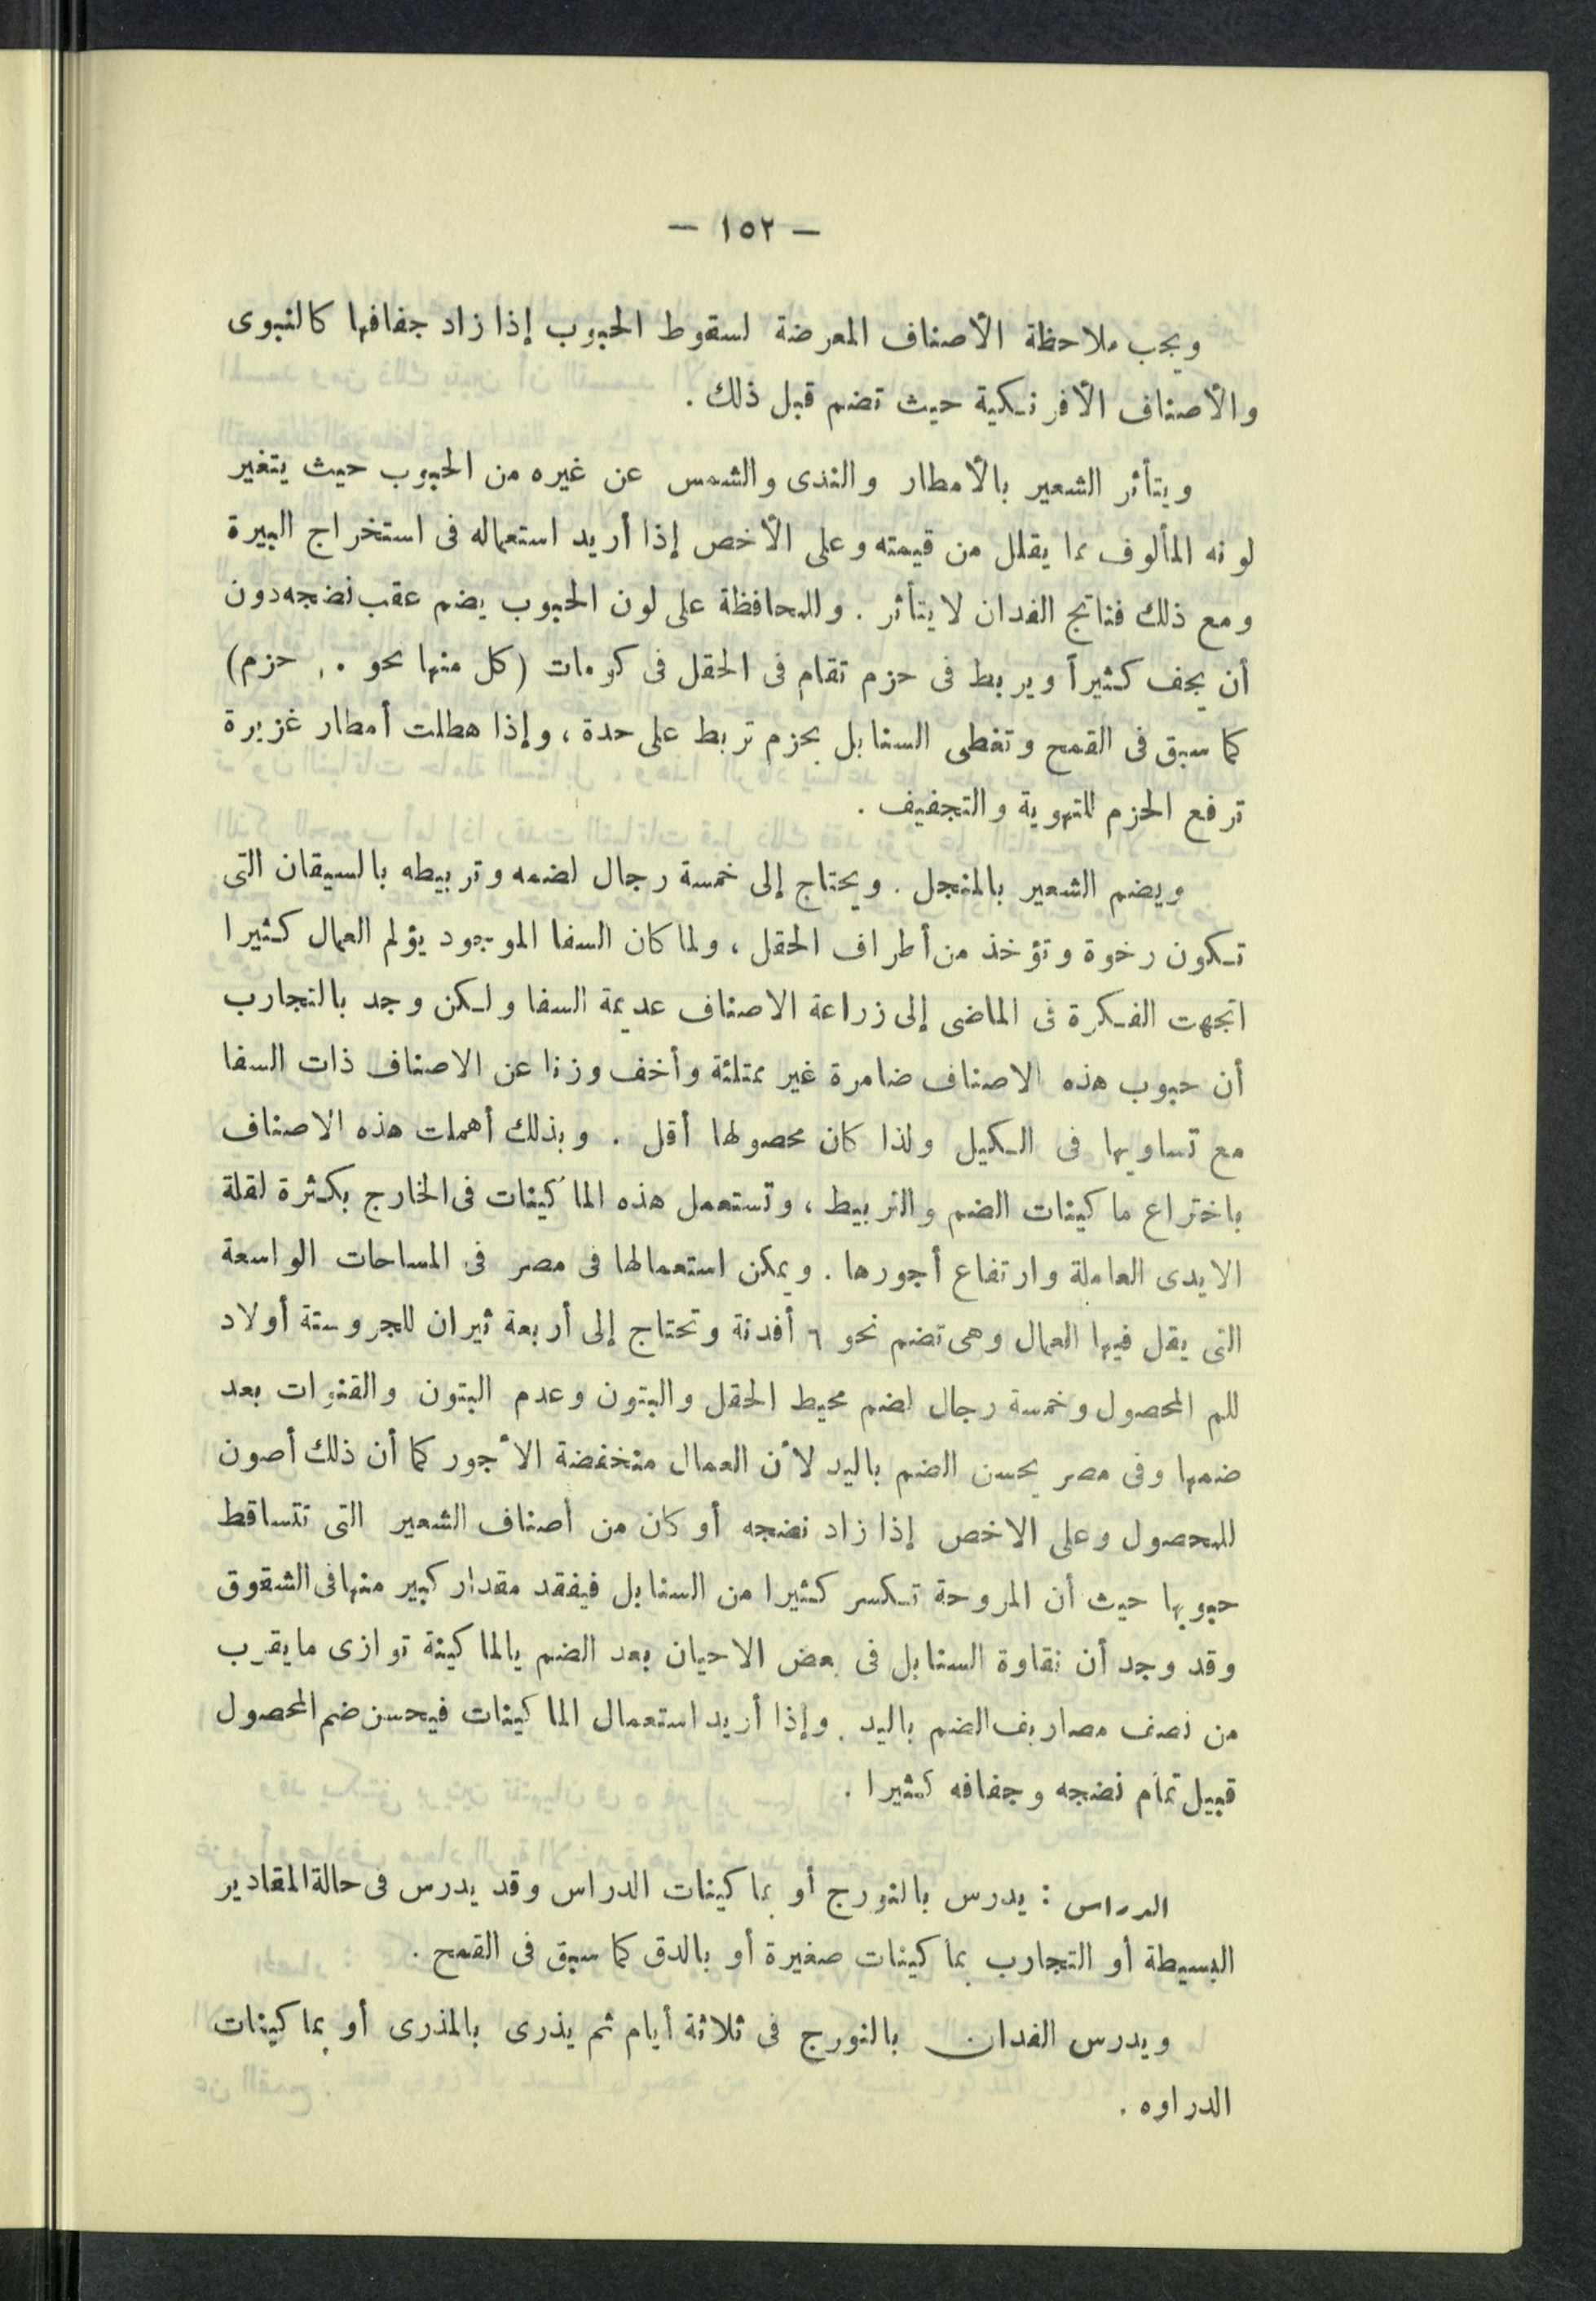 — ١٥٢ —
ويجب ملاحظة الأصناف المعرضة لسقوط الحبوب إذا زاد جفافها كالنبوى
والأصناف الأفرنكية حيث تضم قبل ذلك .
ويتأثر الشعير بالأمطار والندى والشمس عن غيره من الحبوب حيث يتغير
لونه المألوف مما يقلل من قيمته وعلى الأخص إذا أريد استعماله فى استخراج البيرة
ومع ذلك فناتج الفدان لا يتأثر . وللمحافظة على لون الحبوب يضم عقب نضجه دون
أن يجف كثيراً ويربط فى حزم تقام فى الحقل فى كومات (كل منها نحو حزم)
كما سبق فى القمح وتغطى السنابل بحزم تربط على حدة ، وإذا هطلت أمطار غزيرة
ترفع الحزم للتهوية والتجفيف .
ويضم الشعير بالمنجل . ويحتاج إلى خمسة رجال لضمه وتربيطه بالسيقان التى
تكون رخوة وتؤخذ من أطراف الحقل ، ولما كان السفا الموجود يؤلم العمال كثيرا
اتجهت الفكرة فى الماضى إلى زراعة الاصناف عديمة السفا ولكن وجد بالتجارب
أن حبوب هذه الاصناف ضامرة غير ممتلئة وأخف وزنا عن الاصناف ذات السفا
مع تساويها فى الكيل ولذا كان محصولها أقل . وبذلك أهملت هذه الاصناف
باختراع ماكينات الضم والتربيط ، وتستعمل هذه الماكينات فى الخارج بكثرة لقلة
الايدى العاملة وارتفاع أجورها . ويمكن استعمالها فى مصر فى المساحات الواسعة
التى يقل فيها العمال وهى تضم نحو ٦ أفدنة وتحتاج إلى أربعة ثيران للجر وستة أولاد
للم المحصول وخمسة رجال لضم محيط الحقل والبتون وعدم البتون والقنوات بعد
ضمها وفى مصر يحسن الضم باليد لأن العمال منخفضة الأجور كما أن ذلك أصون
للمحصول وعلى الاخص إذا زاد نضجه أو كان من أصناف الشعير التى تتساقط
حبوبها حيث أن المروحة تكسر كثيرا من السنابل فيفقد مقدار كبير منها فى الشقوق
وقد وجد أن نقاوة السنابل فى بعض الاحيان بعد الضم بالماكينة توازى ما يقرب
من نصف مصاريف الضم باليد . وإذا أريد استعمال الماكينات فيحسن ضم المحصول
قبيل تمام نضجه وجفافه كثيرا .
الدراس : يدرس بالنورج أو بماكينات الدراس وقد يدرس فى حالة المقادير
البسيطة أو التجارب بماكينات صغيرة أو بالدق كما سبق فى القمح .
ويدرس الفدان بالنورج فى ثلاثة أيام ثم يذرى بالمذرى أو بماكينات
الدراوه .